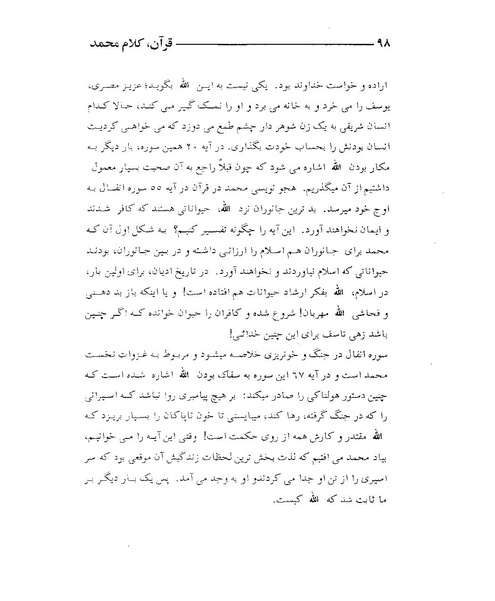 ۹۸ قرآن، کلام محمد
اراده و خواست خداوند بود. یکی نیست به این الله بگوید؛ عزیز مصری،
یوسف را می خرد و به خانه می برد و او را نمک گیر می کند، حالا کدام
انسان شریفی به یک زن شوهر دار چشم طمع می دوزد که می خواهی کردیت
انسان بودنش را بحساب خودت بگذاری. در آیه ۲۰ همین سوره، بار دیگر به
مکار بودن الله اشاره می شود که چون قبلاً راجع به آن صحبت بسیار معمول
داشتیم از آن میگذریم. هجو نویسی محمد در قرآن در آیه ۵۵ سوره انفال به
اوج خود میرسد. بد ترین جانوران نزد الله، حیواناتی هستند که کافر شدند
و ایمان نخواهند آورد. این آیه را چگونه تفسیر کنیم؟ به شکل اول آن که
محمد برای جانوران هم اسلام را ارزانی داشته و در بین جانوران، بودند
حیواناتی که اسلام نیاوردند و نخواهند آورد. در تاریخ ادیان، برای اولین بار،
در اسلام، الله بفکر ارشاد حیوانات هم افتاده است! و یا اینکه باز بد دهنی
و فحاشی الله مهربان! شروع شده و کافران را حیوان خوانده که اگر چنین
باشد زهی تاسف برای این چنین خدائی!
سوره انفال در جنگ و خونریزی خلاصه میشود و مربوط به غزوات نخست
محمد است و در آیه ۶۷ این سوره به سفاک بودن الله اشاره شده است که
چنین دستور هولناکی را صادر میکند: بر هیچ پیامبری روا نباشد که اسیرانی
را که در جنگ گرفته، رها کند، میبایستی تا خون ناپاکان را بسیار بریزد که
الله مقتدر و کارش همه از روی حکمت است! وقتی این آیه را می خوانیم،
بیاد محمد می افتیم که لذت بخش ترین لحظات زندگیش آن موقعی بود که سر
اسیری را از تن او جدا می کردندو او به وجد می آمد. پس یک بار دیگر بر
ما ثابت شد که الله کیست.